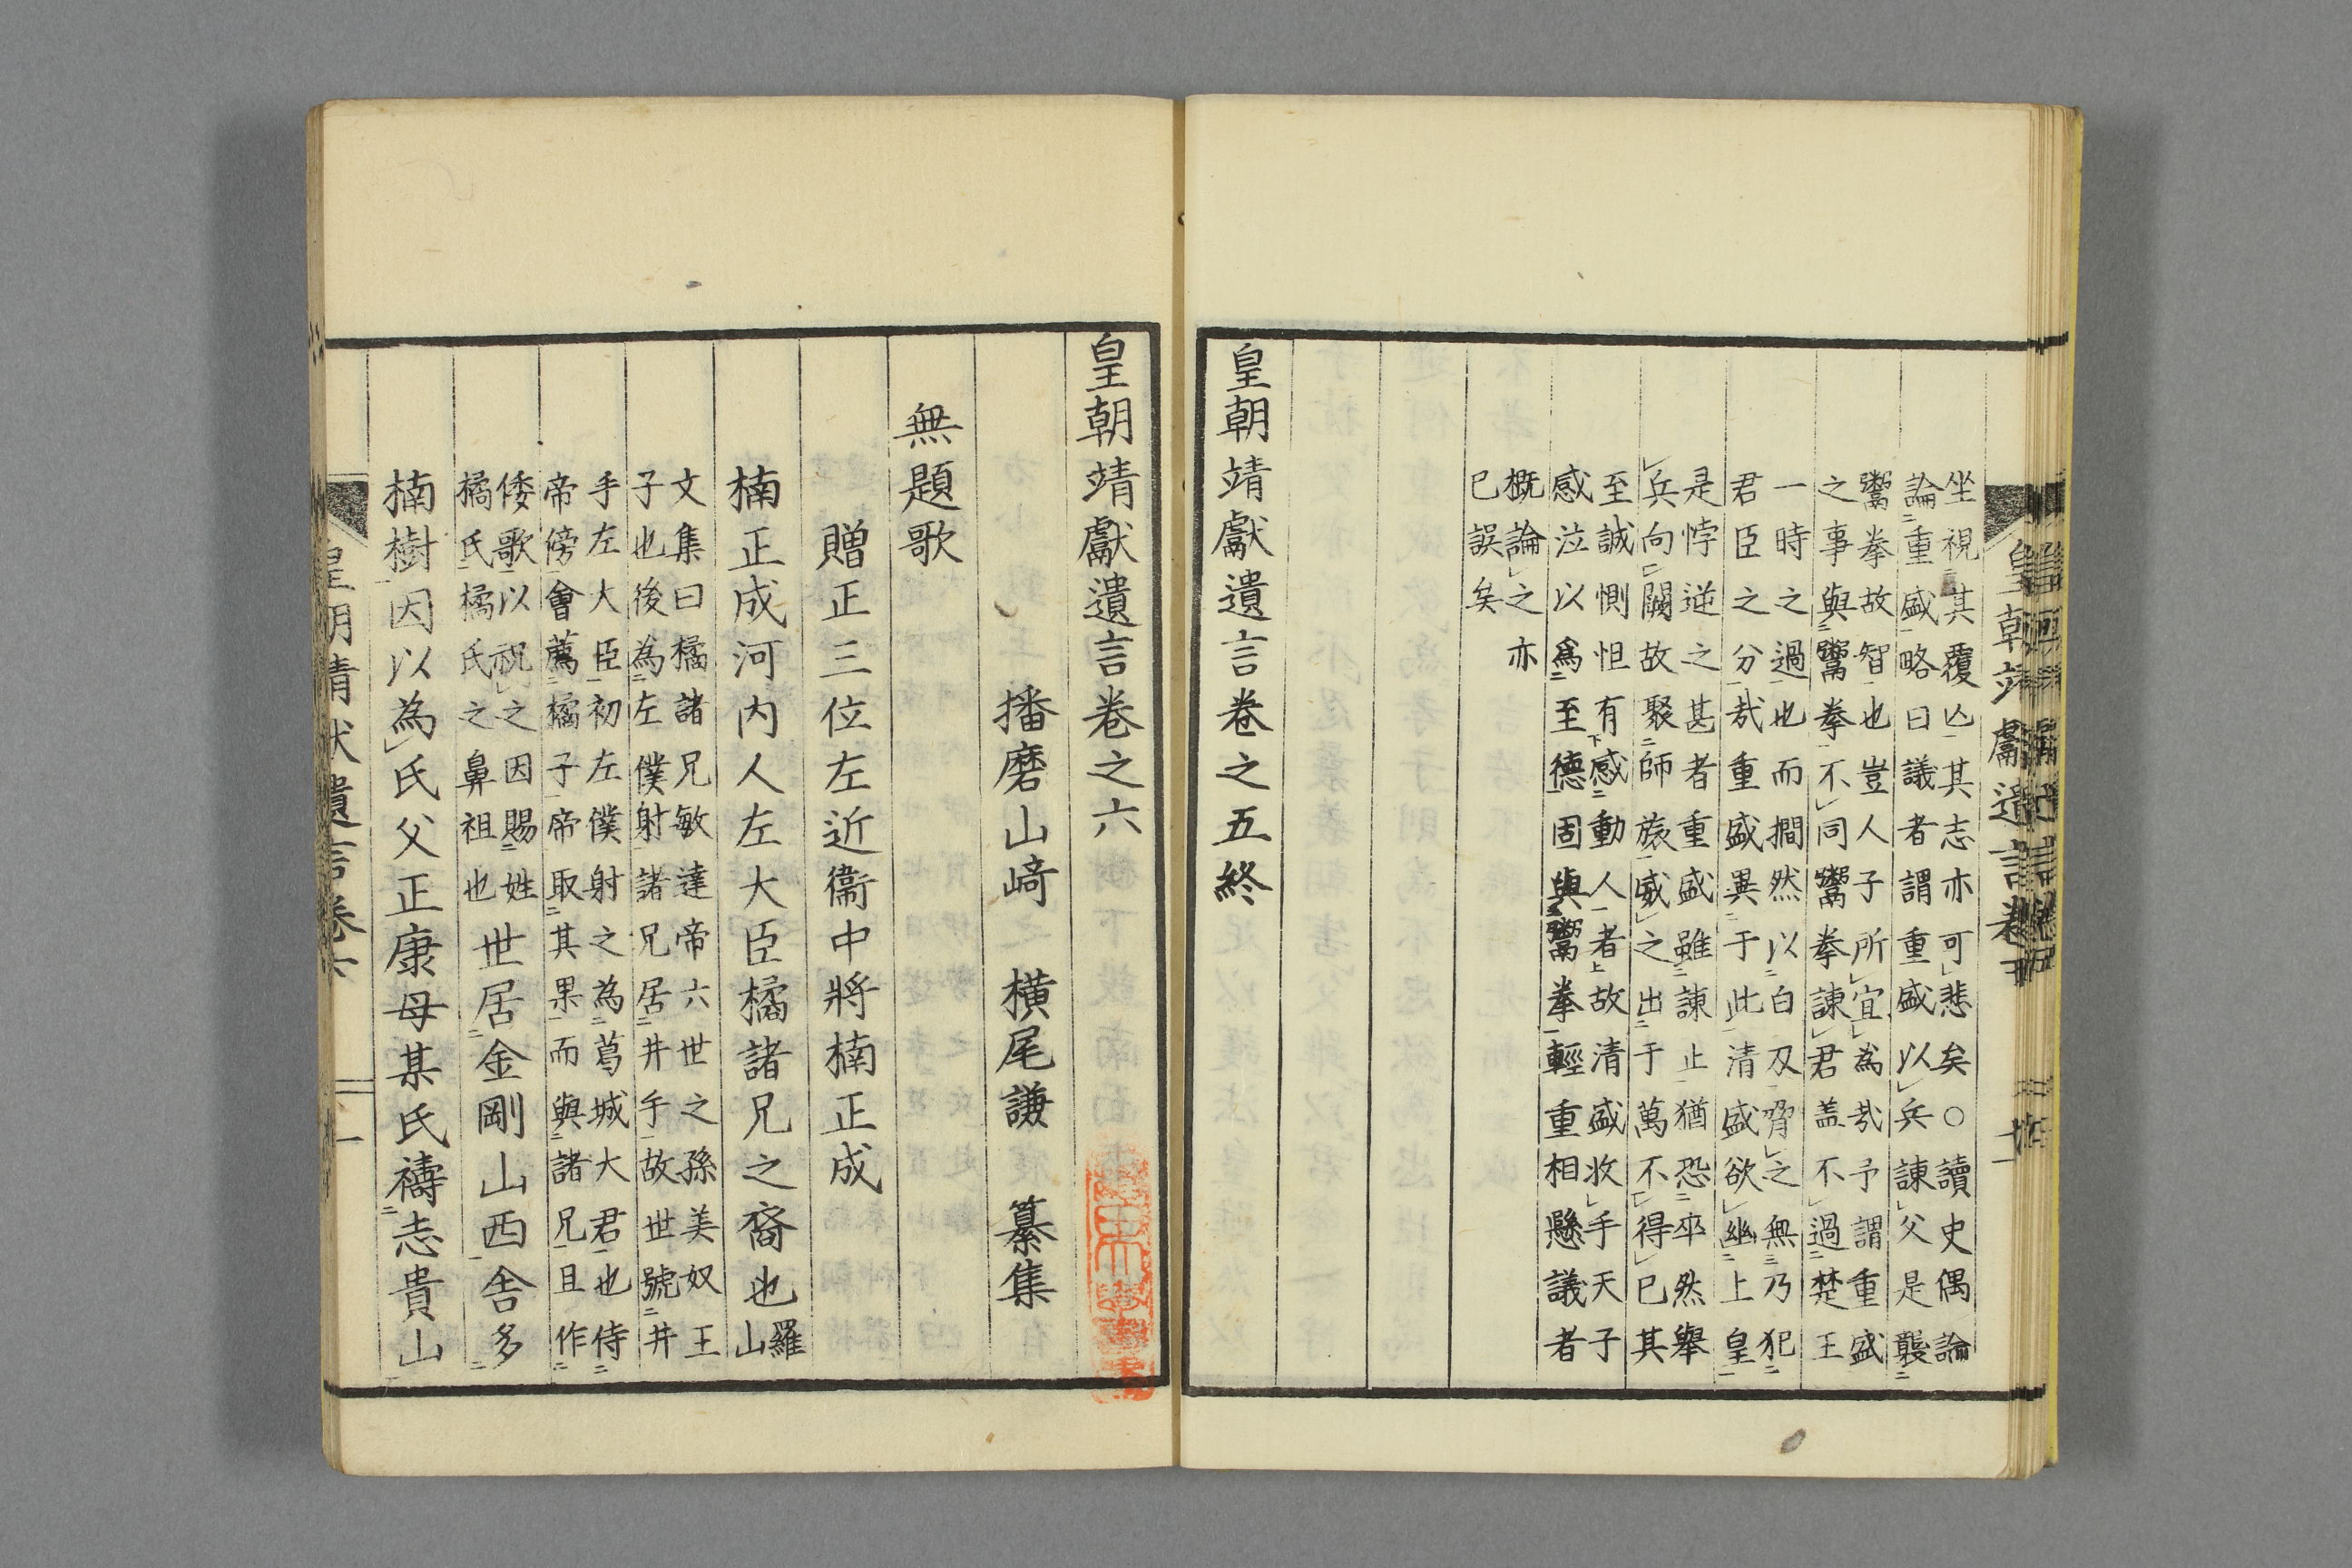 坐視其覆亾其志亦可悲矣○讀史偶論
論重盛略曰議者謂重盛以兵諫父是襲
鬻拳故智也豈人子所宜為哉予謂重盛
之事與鬻拳不同鬻拳諫君盖不過楚王
一時之過也而撊然以白刃脅之無乃犯
君臣之分哉重盛異于此清盛欲幽上皇
是悖逆之甚者重盛雖諫止猶恐卒然舉
兵向闕故聚師旅威之出于萬不得已其
至誠惻怛有感動人者故清盛收手天子
感泣以爲至德固與鬻拳輕重相懸議者
概論之亦
已誤矣
皇朝靖獻遺言卷之五終
皇朝靖獻遺言卷之六
播磨山﨑　橫尾謙　纂集
無題歌
贈正三位左近衞中將楠正成
楠正成河内人左大臣橘諸兄之裔也羅
山
文集曰橘諸兄敏達帝六世之孫美奴王
子也後為左僕射諸兄居井手故世號井
手左大臣初左僕射之為葛城大君也侍
帝傍會薦橘子帝取其果而與諸兄且作
倭歌以祝之因賜姓
橘氏橘氏之鼻祖也
世居金剛山西舍多
楠樹因以為氏父正康母某氏禱志貴山
皇朝靖獻遺言卷六　一